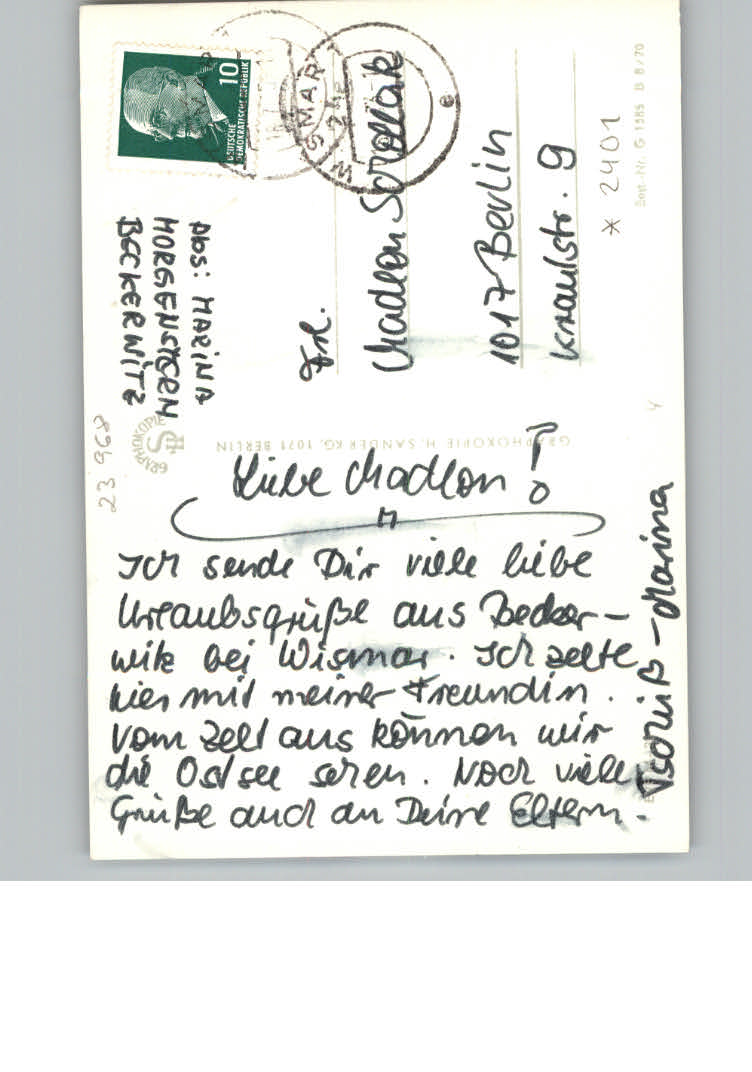 Liebe Madlon!
Ich sende Dir viele liebe
Urlaubsgrüße aus Becker-
witz bei Wismar. Ich zelte
hier mit meiner Freundin.
Vom Zelt aus können wir
die Ostsee sehen. Noch viele
Grüße auch an Deine Eltern.
Tschüß - Marina
Abs: MARINA
MORGENSTERN
BECKERWITZ
Frl.
Madlon
1017 Berlin
Krautstr. 9
10
DEUTSCHE
DEMOKRATISCHE REPUBLIK
WISMAR
e
GRAPHOKOPIE
GRAPHOKOPIE H. SANDER KG, 1071 BERLIN
* 2401
Best.-Nr. G 1385 B 8/70
23 968